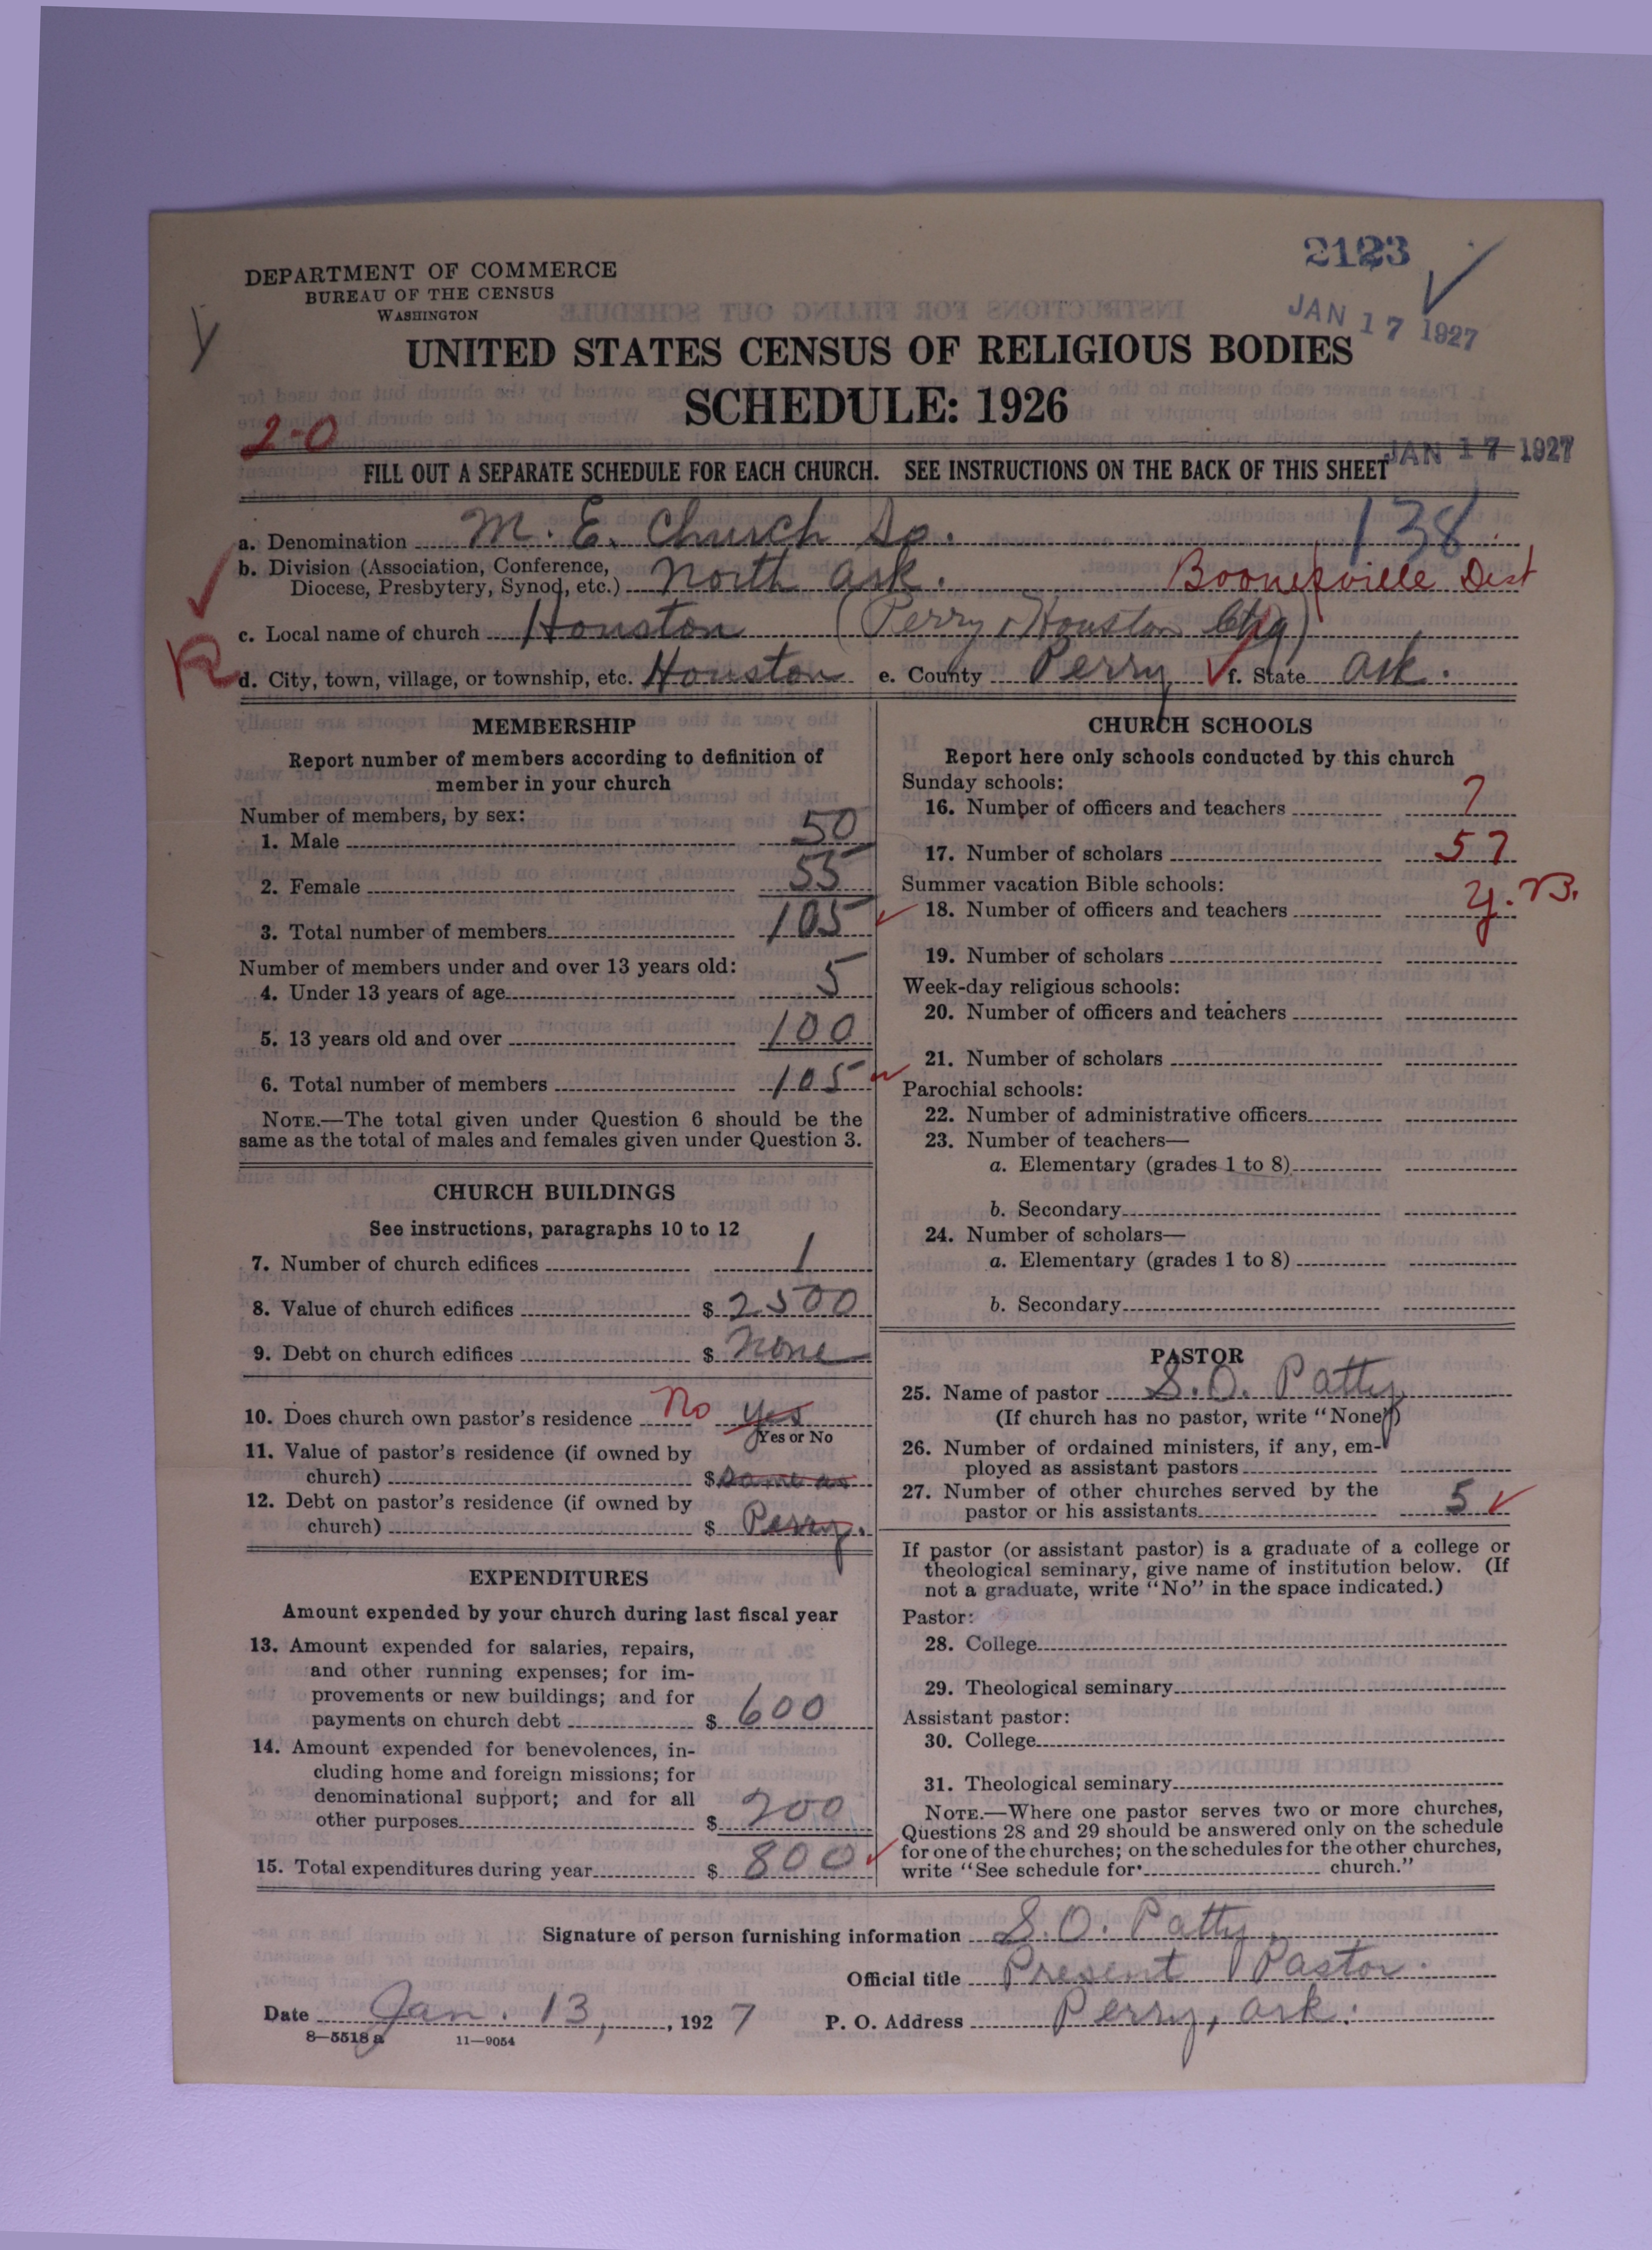 2123
DEPARTMENT OF COMMERCE
BUREAU OF THE CENSUS
WASHINGTON
JAN 17 1927
UNITED STATES CENSUS OF RELIGIOUS BODIES
SCHEDULE: 1926
2-0
JAN 17 1927
FILL OUT A SEPARATE SCHEDULE FOR EACH CHURCH. SEE INSTRUCTIONS ON THE BACK OF THIS SHEET
a. Denomination M. E. Church So. 138
b. Division (Association, Conference,
Diocese, Presbytery, Synod, etc.) North Ark. Booneville Dist
c. Local name of church Houston (Perry & Houston Chg)
R
d. City, town, village, or township, etc. Houston e. County Perry f. State Ark.
MEMBERSHIP
Report number of members according to definition of
member in your church
Number of members, by sex:
1. Male 50
2. Female 55
3. Total number of members 105
Number of members under and over 13 years old:
4. Under 13 years of age 5
5. 13 years old and over 100
6. Total number of members 105
NOTE.—The total given under Question 6 should be the
same as the total of males and females given under Question 3.
CHURCH BUILDINGS
See instructions, paragraphs 10 to 12
7. Number of church edifices 1
8. Value of church edifices $ 2500
9. Debt on church edifices $ None
10. Does church own pastor's residence No Yes
Yes or No
11. Value of pastor's residence (if owned by
church) $ Same as
12. Debt on pastor's residence (if owned by
church) $ Perry.
EXPENDITURES
Amount expended by your church during last fiscal year
13. Amount expended for salaries, repairs,
and other running expenses; for im-
provements or new buildings; and for
payments on church debt $ 600
14. Amount expended for benevolences, in-
cluding home and foreign missions; for
denominational support; and for all
other purposes $ 200
15. Total expenditures during year $ 800
CHURCH SCHOOLS
Report here only schools conducted by this church
Sunday schools:
16. Number of officers and teachers 7
17. Number of scholars 57
Summer vacation Bible schools:
18. Number of officers and teachers y. B.
19. Number of scholars
Week-day religious schools:
20. Number of officers and teachers
21. Number of scholars
Parochial schools:
22. Number of administrative officers
23. Number of teachers—
a. Elementary (grades 1 to 8)
b. Secondary
24. Number of scholars—
a. Elementary (grades 1 to 8)
b. Secondary
PASTOR
25. Name of pastor S. O. Patty
(If church has no pastor, write "None")
26. Number of ordained ministers, if any, em-
ployed as assistant pastors
27. Number of other churches served by the
pastor or his assistants 5
If pastor (or assistant pastor) is a graduate of a college or
theological seminary, give name of institution below. (If
not a graduate, write "No" in the space indicated.)
Pastor:
28. College
29. Theological seminary
Assistant pastor:
30. College
31. Theological seminary
NOTE.—Where one pastor serves two or more churches,
Questions 28 and 29 should be answered only on the schedule
for one of the churches; on the schedules for the other churches,
write "See schedule for church."
Signature of person furnishing information S. O. Patty
Official title Present Pastor.
Date Jan. 13, 1927 P. O. Address Perry, Ark.
8—5518 a 11—9054